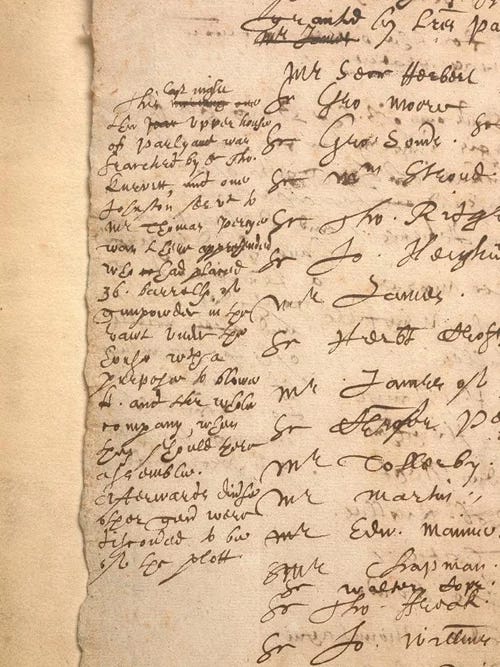 granted by Lres Pa
Mr James
Mr Secr Herbert
Sr Geo Moore
Sr Geo Somrs. Sr
Sr Wm Stroud.
Sr Tho. Ridg
Sr Jo. Heigha
Mr James.
Sr Herbt Croft
Mr James of
Sr
Mr Tollerby.
Mr Martin.
Mr Edw. Manne
Mr Chapman.
Sr Walter Cope.
Sr Tho. Freak.
Sr Jo. Willms
last night
This
the Upper house
of Parlyamt was
searched by Sr Tho.
Knevett, and one
Johnson Servt to
Mr Thomas Percye
was there apprehended
who had placed
36. barrells of
gunpowder in the
vawt under the
house wth a
purpose to blowe
K. and the whole
company, when
they should there
assemble.
Afterwards divers
other gent were
discovered to be
of the plott